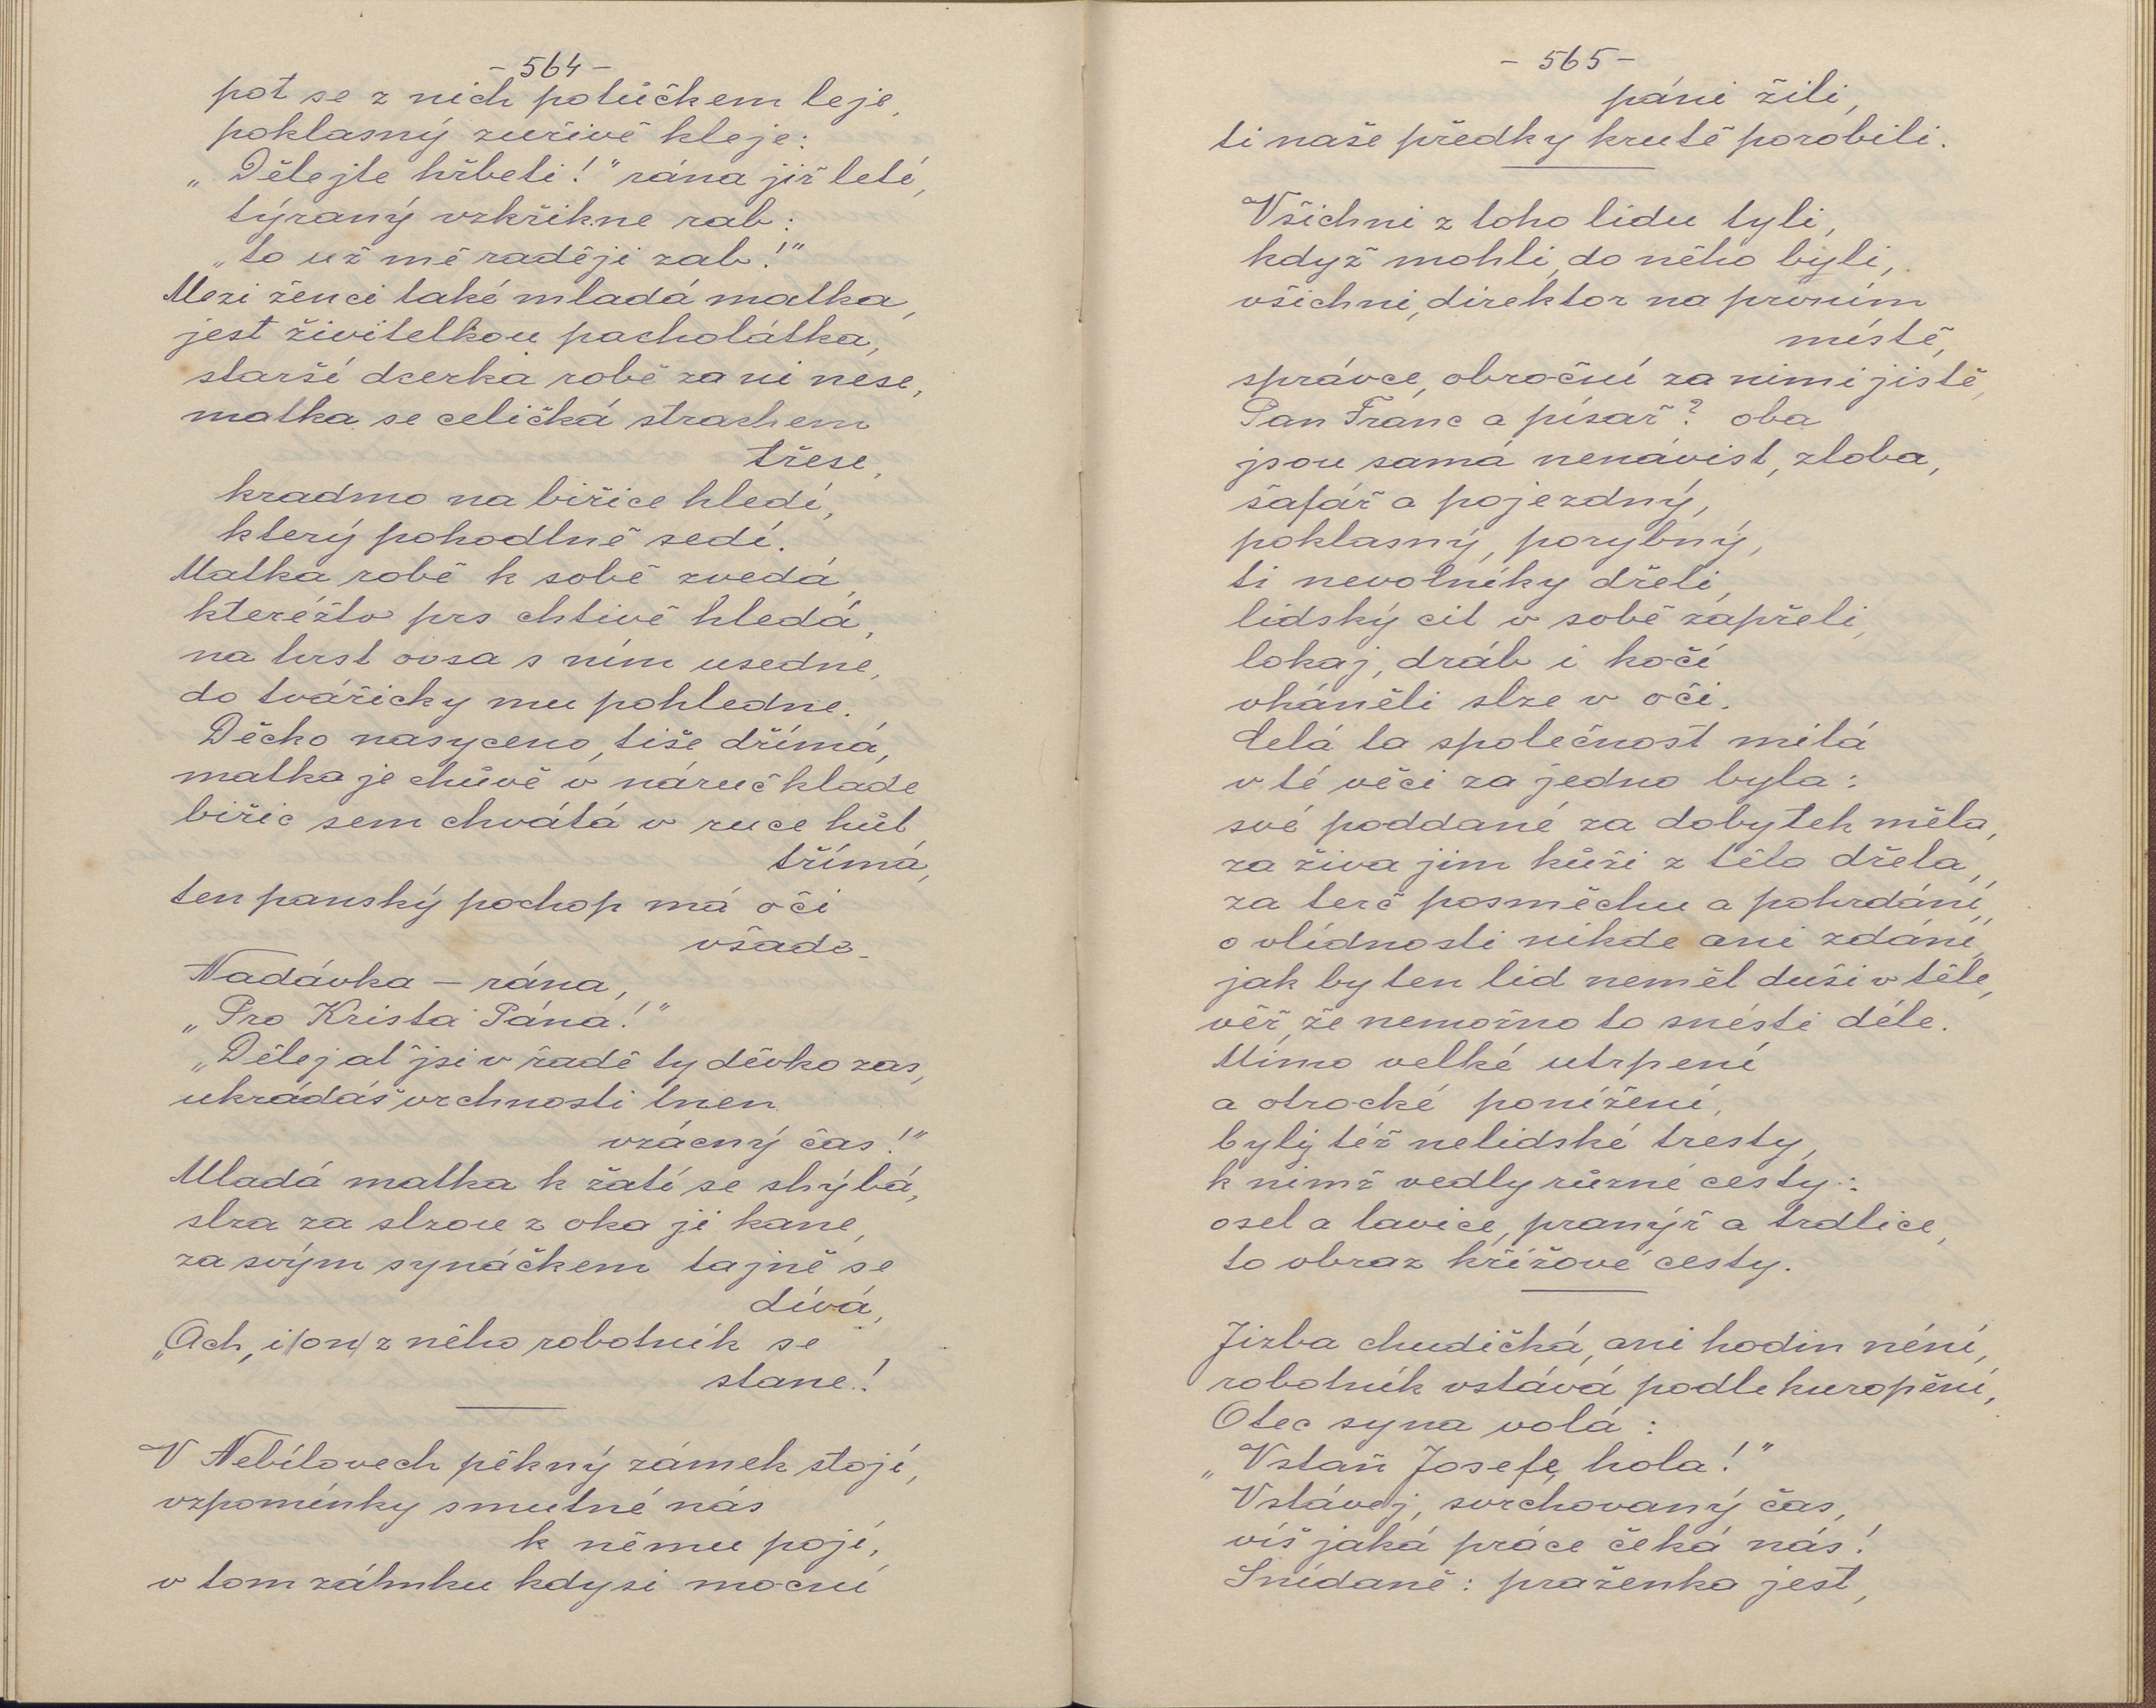 - 564 -
pot se z nich potůčkem leje,
poklasný zuřivě kleje:
„Dělejte hřbeti!" rána již letí,
týraný vzkřikne rab:
„to už mě raději zab!"
Mezi ženci také mladá matka,
jest živitelkou pacholátka,
starší dcerka robě za ni nese,
matka se celičká strachem
třese,
kradmo na biřice hledí,
který pohodlně sedí.
Matka robě k sobě zvedá,
kteréžto prs chtivě hledá,
na hrst ovsa s ním usedne,
do tvářicky mu pohledne.
Děcko nasyceno, tiše dřímá,
matka je chůvě v náruč klade
biřic sem chvátá v ruce hůl
třímá,
ten panský pochop má oči
všade.
Nadávka – rána,
„Pro Krista Pána!"
„Dělej ať jsi v řadě ty děvko zas,
ukrádáš vrchnosti tnen
vzácný čas!"
Mladá matka k žatí se shýbá,
slza za slzou z oka jí kane,
za svým synáčkem tajně se
dívá,
„Ach, i /on/ z něho robotník se
stane!
V Nebílovech pěkný zámek stojí,
vzpomínky smutné nás
k němu pojí,
v tom zámku kdysi mocní
- 565 -
páni žili,
ti naše předky krutě porobili.
Všichni z toho lidu tyli,
když mohli, do něho byli,
všichni, direktor na prvním
místě,
správce, obroční za nimi jistě,
Pan Franc a písař? oba
jsou samá nenávist, zloba,
šafář a pojezdný,
poklasný, porybný,
ti nevolníky dřeli,
lidský cit v sobě zapřeli,
lokaj, dráb i kočí
vháněli slze v oči.
Celá ta společnost milá
v té věci za jedno byla:
své poddané za dobytek měla,
za živa jim kůži z těla dřela,
za terč posměchu a pohrdání,
o vlídnosti nikde ani zdání,
jak by ten lid neměl duši v těle,
věř, že nemožno to snésti déle.
Mimo velké utrpení
a otrocké ponížení,
byly též nelidské tresty,
k nimž vedly různé cesty:
osel a lavice, pranýř a trdlice,
to obraz křížové cesty.
Jizba chudičká, ani hodin není,
robotník vstává podle kuropění,
Otec syna volá:
„Vstaň Josefe, hola!"
Vstávej, svrchovaný čas,
víš jaká práce čeká nás!
Snídaně: praženka jest,